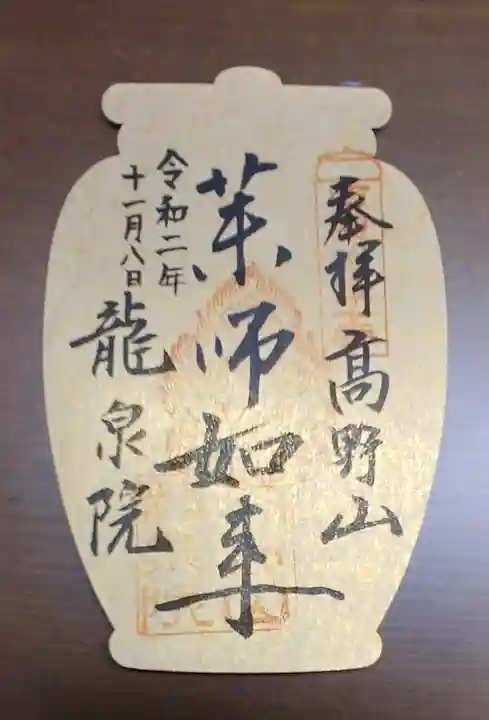 奉拝 高野山
薬師如来
令和二年
十一月八日
龍泉院